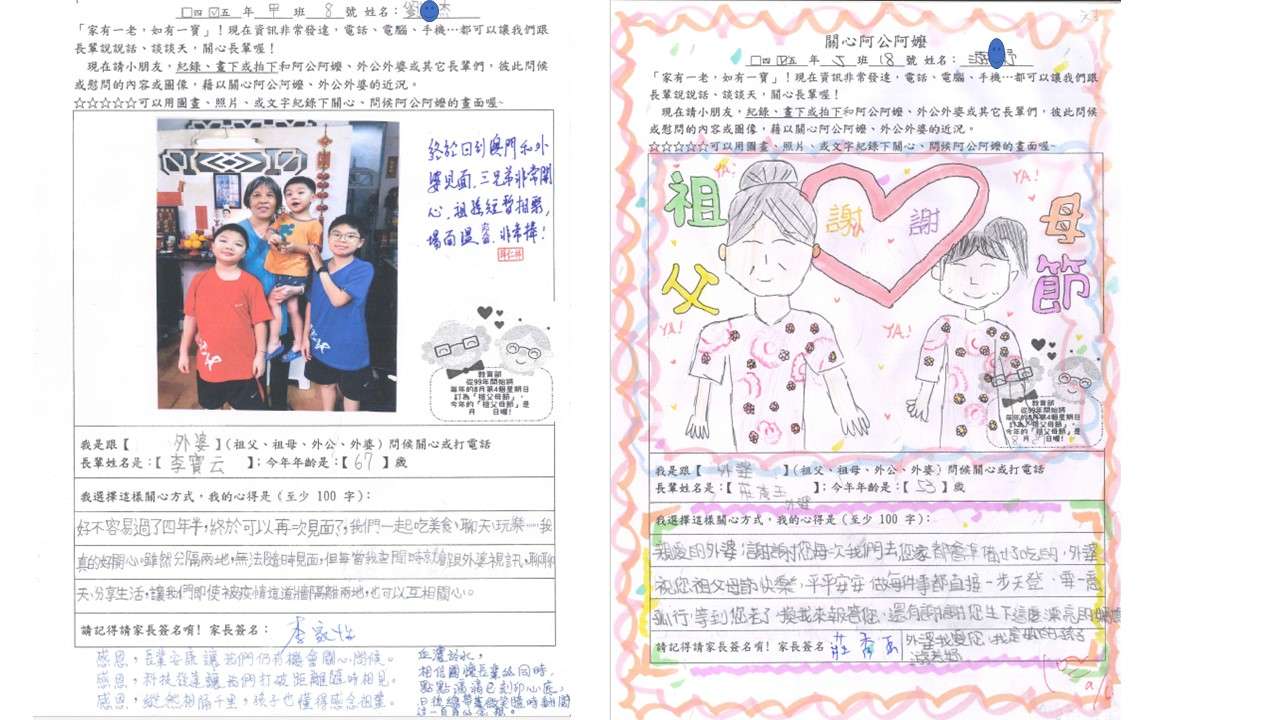 □四 ☑五 年 甲 班 8 號 姓名：
「家有一老，如有一寶」！現在資訊非常發達，電話、電腦、手機…都可以讓我們跟
長輩說說話、談談天，關心長輩喔！
現在請小朋友，紀錄、畫下或拍下和阿公阿嬤、外公外婆或其它長輩們，彼此問候
或慰問的內容或圖像，藉以關心阿公阿嬤、外公外婆的近況。
☆☆☆☆☆可以用圖畫、照片、或文字紀錄下關心、問候阿公阿嬤的畫面喔~
終於回到澳門和外
婆見面,三兄弟非常開
心,祖孫短暫相聚,
場面溫 非常棒!
教育部
從99年開始將
每年的8月第4個星期日
訂為「祖父母節」，
今年的「祖父母節」是
月 日喔!
我是跟【 外婆 】(祖父、祖母、外公、外婆) 問候關心或打電話
長輩姓名是：【 李寶云 】；今年年齡是：【 67 】歲
我選擇這樣關心方式，我的心得是 (至少 100 字)：
好不容易過了四年半,終於可以再次見面了,我們一起吃美食、聊天、玩樂……我
真的好開心。雖然分隔兩地,無法隨時見面,但每當我空閒時就會跟外婆視訊,聊聊
天、分享生活,讓我們即使被疫情這道牆隔離兩地,也可以互相關心。
請記得請家長簽名唷! 家長簽名：
感恩,長輩安康讓我們仍有機會關心問候。
感恩,科技發達讓我們打破距離隨時相見。
感恩,縱然相隔千里,孩子也懂得感念祖輩。
血濃於水,
相信關懷長輩的同時,
點點滴滴已刻印心底,
關心阿公阿嬤
□四 ☑五 年 班 18 號 姓名：
「家有一老，如有一寶」！現在資訊非常發達，電話、電腦、手機…都可以讓我們跟
長輩說說話、談談天，關心長輩喔！
現在請小朋友，紀錄、畫下或拍下和阿公阿嬤、外公外婆或其它長輩們，彼此問候
或慰問的內容或圖像，藉以關心阿公阿嬤、外公外婆的近況。
☆☆☆☆☆可以用圖畫、照片、或文字紀錄下關心、問候阿公阿嬤的畫面喔~
祖父
母節
謝謝
YA!
YA!
YA!
YA!
YA!
教育部
從99年開始將
每年的8月第4個星期日
訂為「祖父母節」，
今年的「祖父母節」是
日喔!
我是跟【 外婆 】(祖父、祖母、外公、外婆) 問候關心或打電話
長輩姓名是：【 莊 玉 】；今年年齡是：【 53 】歲
外婆
我選擇這樣關心方式，我的心得是 (至少 100 字)：
我愛的外婆!謝謝您每次我們去您家都會準備好吃的,外婆
祝您祖父母節快樂,平平安安做每件事都直接一步天登,
等到您老了換我來報答您,還有謝謝您生下這麼漂亮的媽媽
請記得請家長簽名唷! 家長簽名
外婆我愛您,